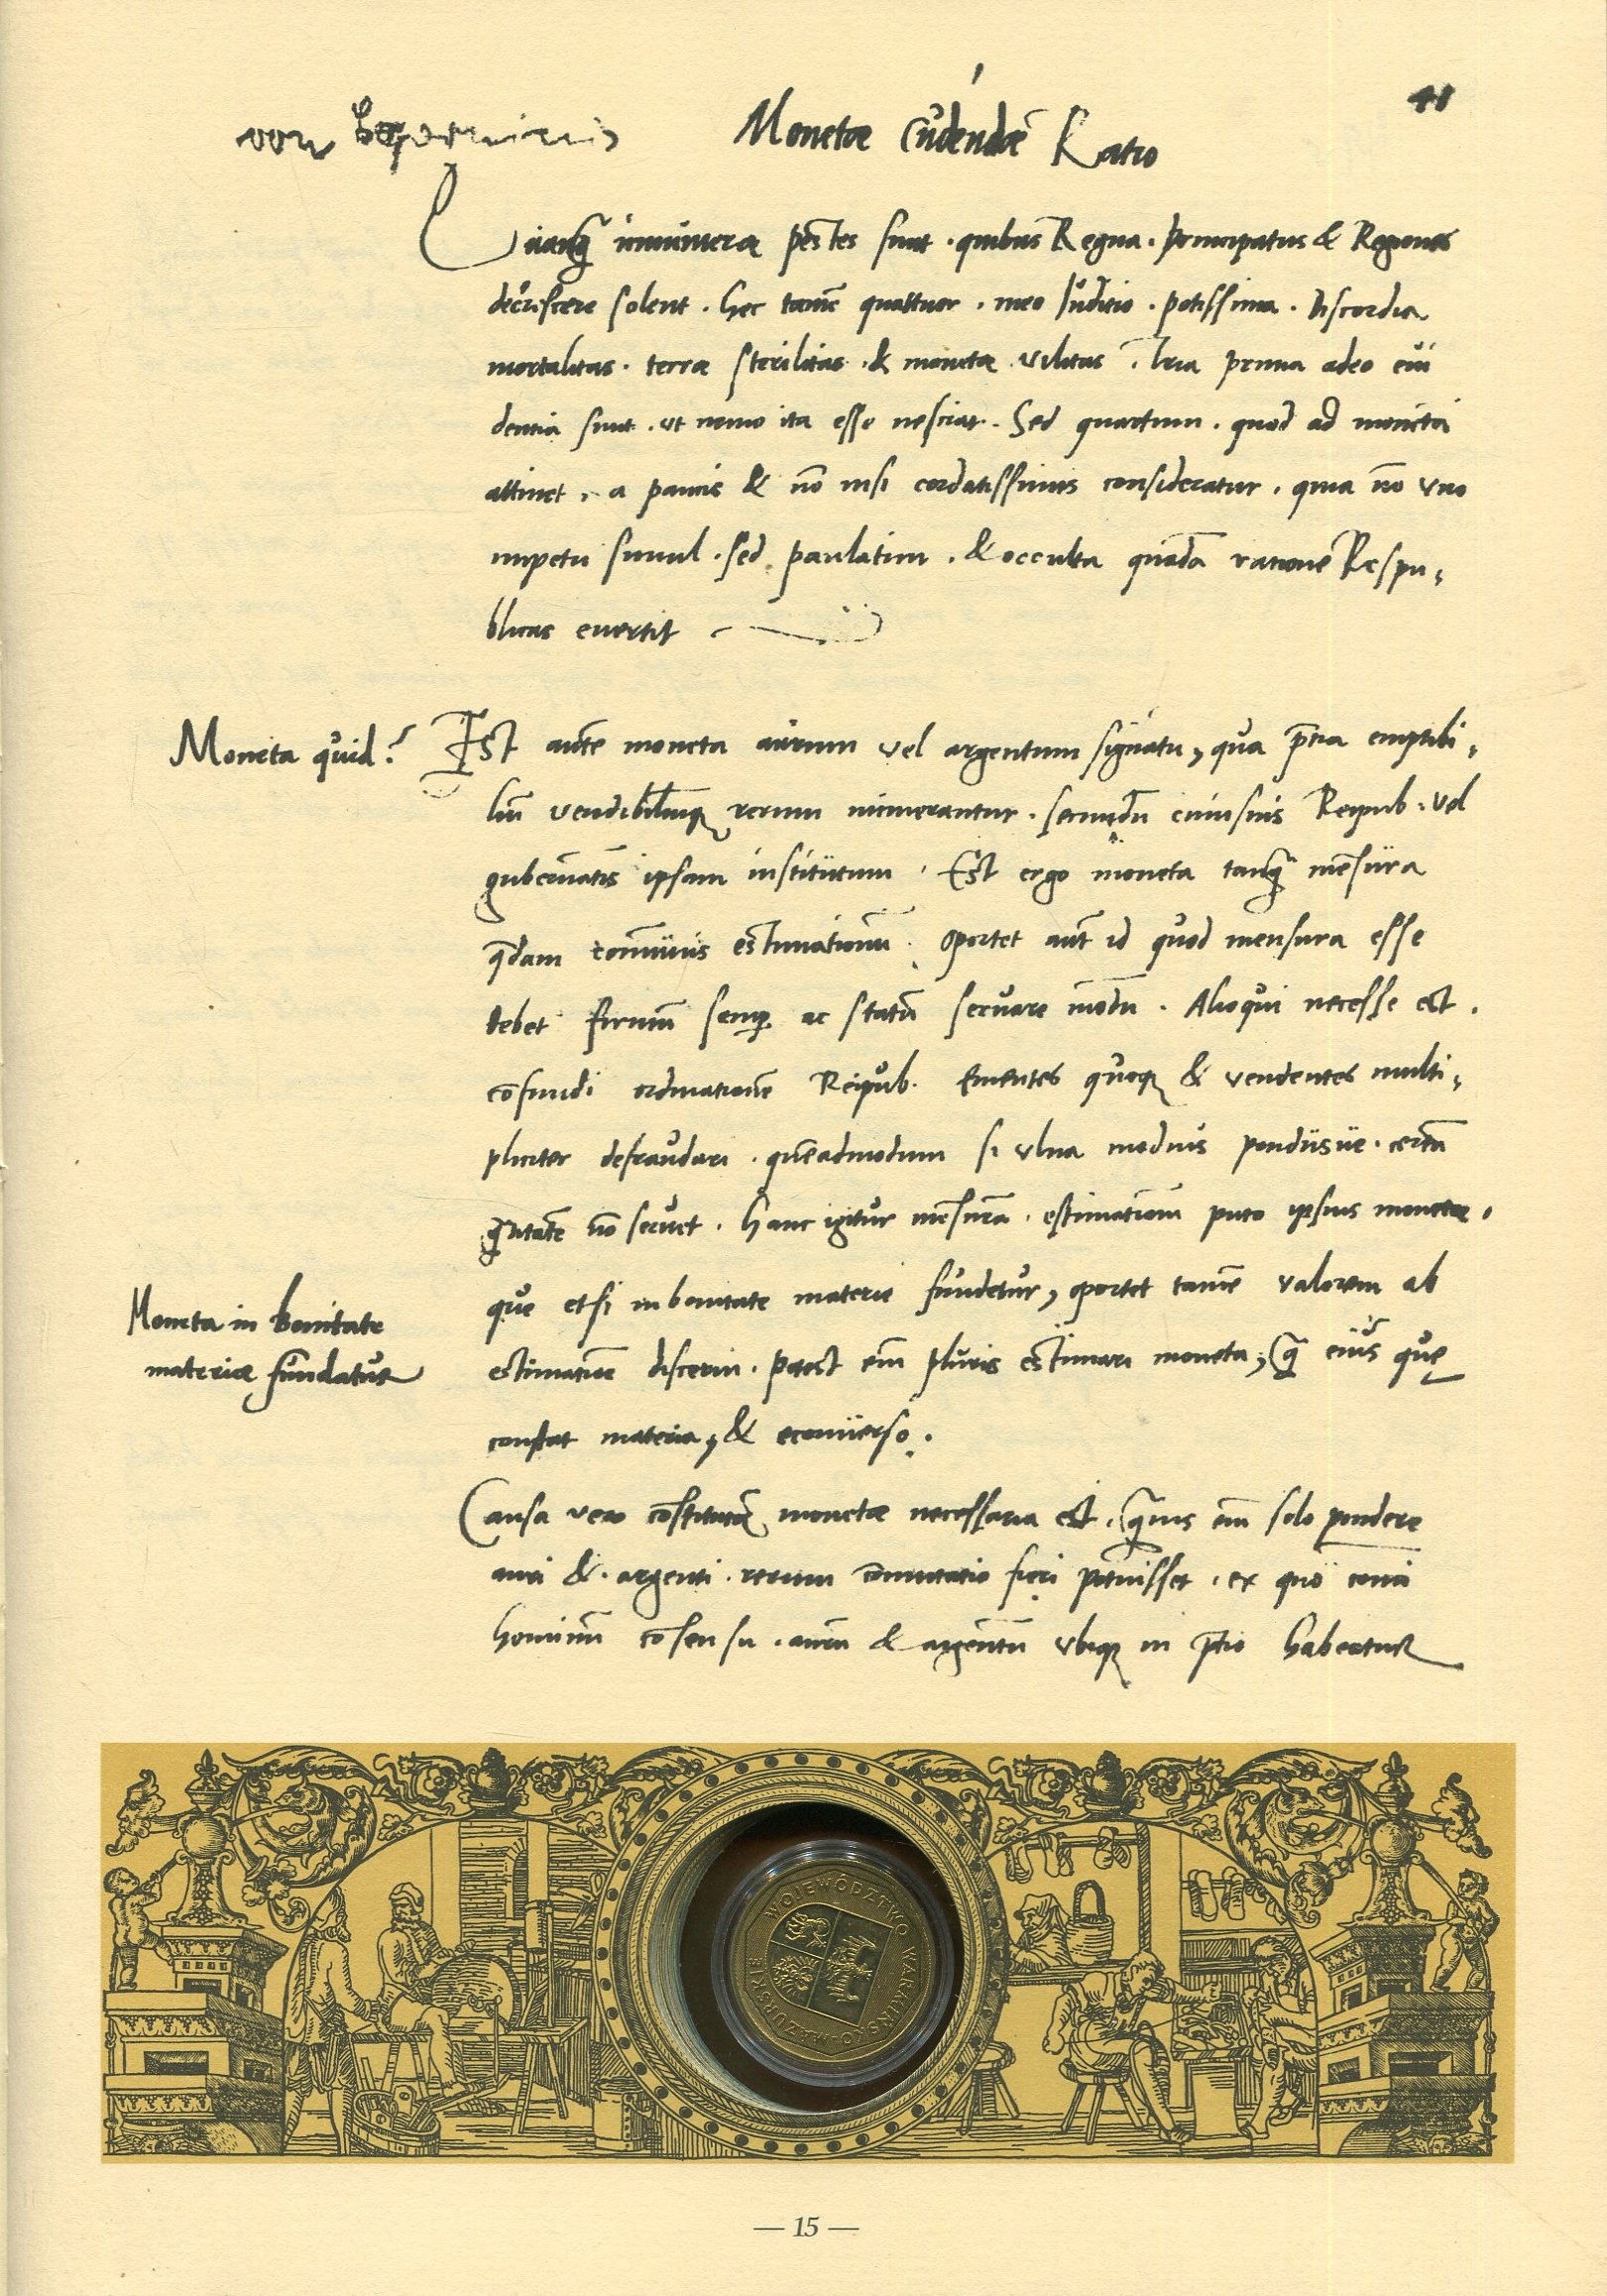 von
Monetæ cudendæ Ratio
41
Quanq̃ innumeræ pestes sunt . quibus Regna . principatus & Regiones
decrescere solent . hec tamẽ quattuor . meo Iuditio . potissima . Discordia
mortalitas . terræ sterilitas . & monetæ vilitas . Tria prima adeo evi
dentia sunt . ut nemo ita esse nesciat . Sed quartum . quod ad monetã
attinet . a paucis & nõ nisi cordatissimis consideratur . quia nõ uno
impetu simul . sed paulatim . & occulta quadã ratione Respu,
blicas evertit
Moneta quid?
Est autẽ moneta aurum vel argentum signatũ, qua p̃tia emptibi,
liũ vendibiliumq; rerum numerantur . secundũ cuiusvis Reipub . vel
gubernãtis ipsam institutum . Est ergo moneta tanq̃ mensura
q̃dam comũnis estimationũ . Oportet aũt id quod mensura esse
debet firmũ semp̱ ac statũ servare modũ . Alioqui necesse est .
cõfundi ordinationẽ Reipub . Ementes quoq; & vendentes multi,
pliciter defraudari . quẽadmodum si ulna modius pondusve . certã
q̃titatẽ nõ servet . Hanc igitur mẽsurã . estimationũ puto ipsius monetæ .
Moneta in bonitate
materiæ fundatur
que etsi in bonitate materie fundetur, oportet tamẽ valorem ab
estimatiõe discerni . Potest eñi pluris estimari moneta, q̃ eius quę
constat materia, & econverso .
Causa vero cõstitutæ monetæ necessaria est . q̃vis eñi solo pondere
auri & . argenti . rerum cõmutatio fieri potuisset . ex quo cõni
hominũ cõsensu . aurũ & argentũ ubiq; in p̃tio habeatur
WOJEWÓDZTWO WARMIŃSKO MAZURSKIE
— 15 —